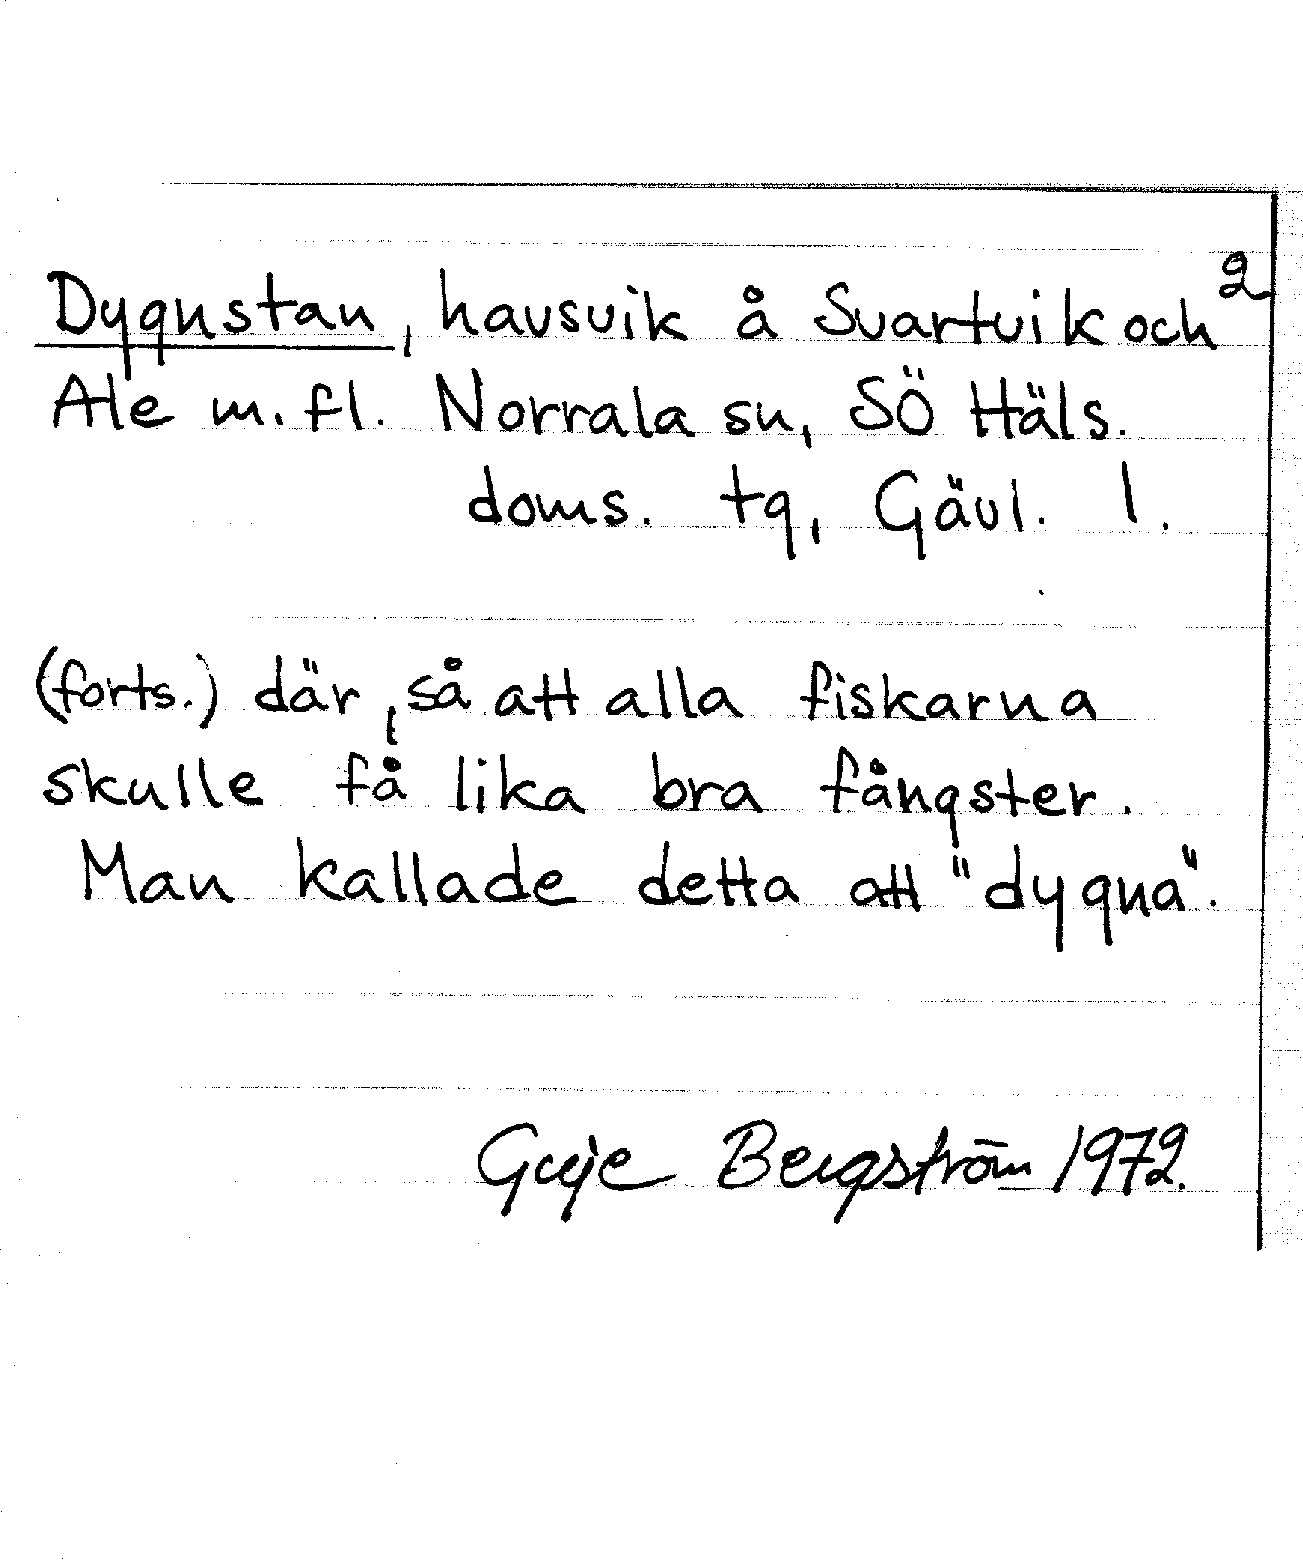 2
Dygnstan, havsvik å Svartvik och
Ale m.fl. Norrala sn, SÖ Häls.
doms. tg, Gävl. l.
(forts.) där, så att alla fiskarna
skulle få lika bra fångster.
Man kallade detta att "dygna".
Bergström 1972.